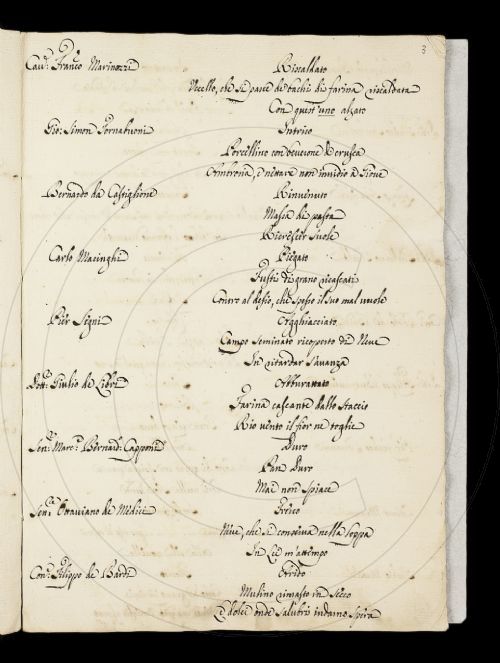 3
Cav.r Franco Marinozzi
Riscaldato
Uccello, che si pasce de bachi di farina riscaldata
Con quest' uno alzato
Gio: Simon Tornabuoni
Intriso
Porcellino con beverone di crusca
Ambrosia, e nettare non invidio a Giove
Bernardo da Castiglione
Rinvenuto
Massa di pasta
Ricrescer suole
Carlo Macinghi
Piegato
di grano ricascati
Contro al desio, che spesso il suo mal vuole
Pier Signi
Agghiacciato
Campo Seminato ricoperto di Neve
In ritardar s'avanza
Dott: Giulio de Libri
Abburattato
Farina cascante dallo Staccio
Rio vento il fior ne toglie
Sen.r Marc.o Bernard: Capponi
Duro
Pan Duro
Mai non Spiace
Sen.r Ottaviano de Medici
Neve, che si conserva nella
In Lei m'attempo
Con: Filippo de Bardi
Arido
Mulino rimasto in Secco
E dolci onde Salubri indarno Spira